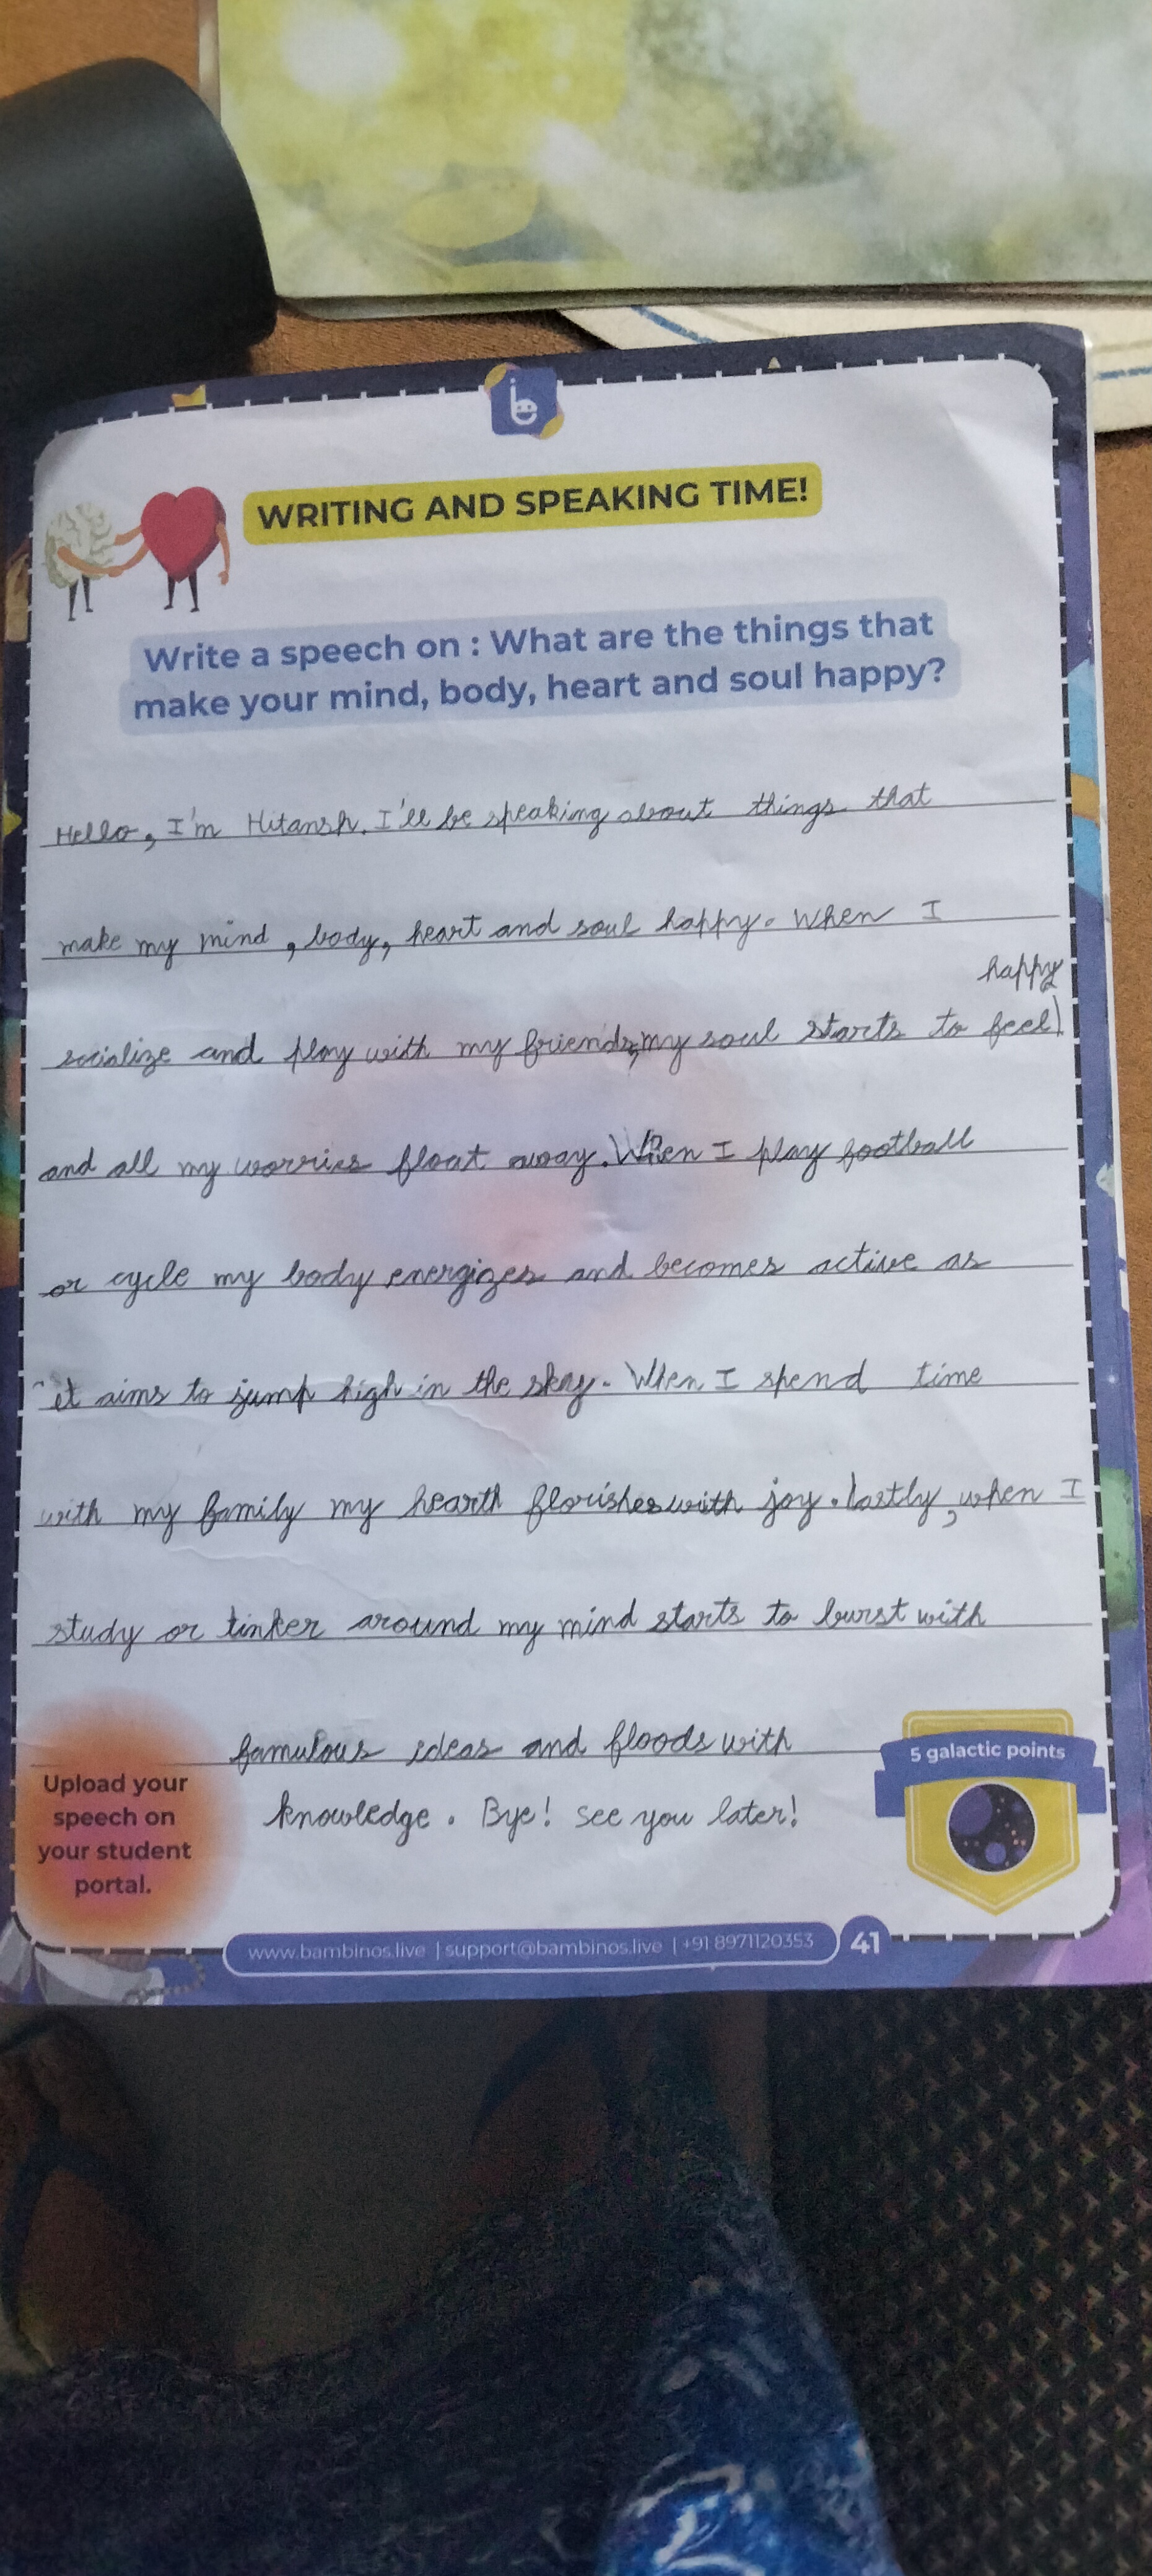 WRITING AND SPEAKING TIME!
Write a speech on : What are the things that
make your mind, body, heart and soul happy?
Hello, I'm Hitansh. I'll be speaking about things that
make my mind, body, heart and soul happy. When I
happy
socialize and play with my friends, my soul starts to feel
and all my worries float away. When I play football
or cycle my body energizes and becomes active as
it aims to jump high in the sky. When I spend time
with my family my hearth florishes with joy. lastly, when I
study or tinker around my mind starts to burst with
famulous ideas and floods with
knowledge. Bye! see you later!
Upload your
speech on
your student
portal.
5 galactic points
www.bambinos.live | support@bambinos.live | +91 8971120353
41